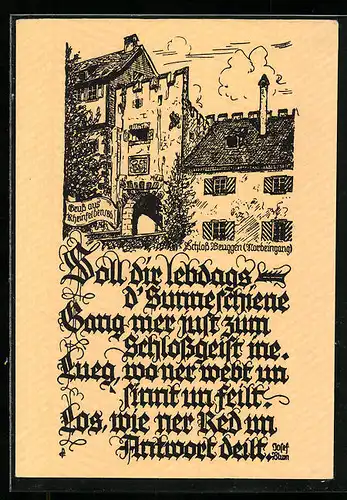 Gruß aus
Rheinfelden
Schloß Beuggen (Toreingang)
Soll dir lebdags
D'Sunne schiene
Gang mer just zum
Schloßgeist ine.
Lueg, wo ner webt un
sinnt un feilt.
Los, wie ner Red un
Antwort deilt.
Josef